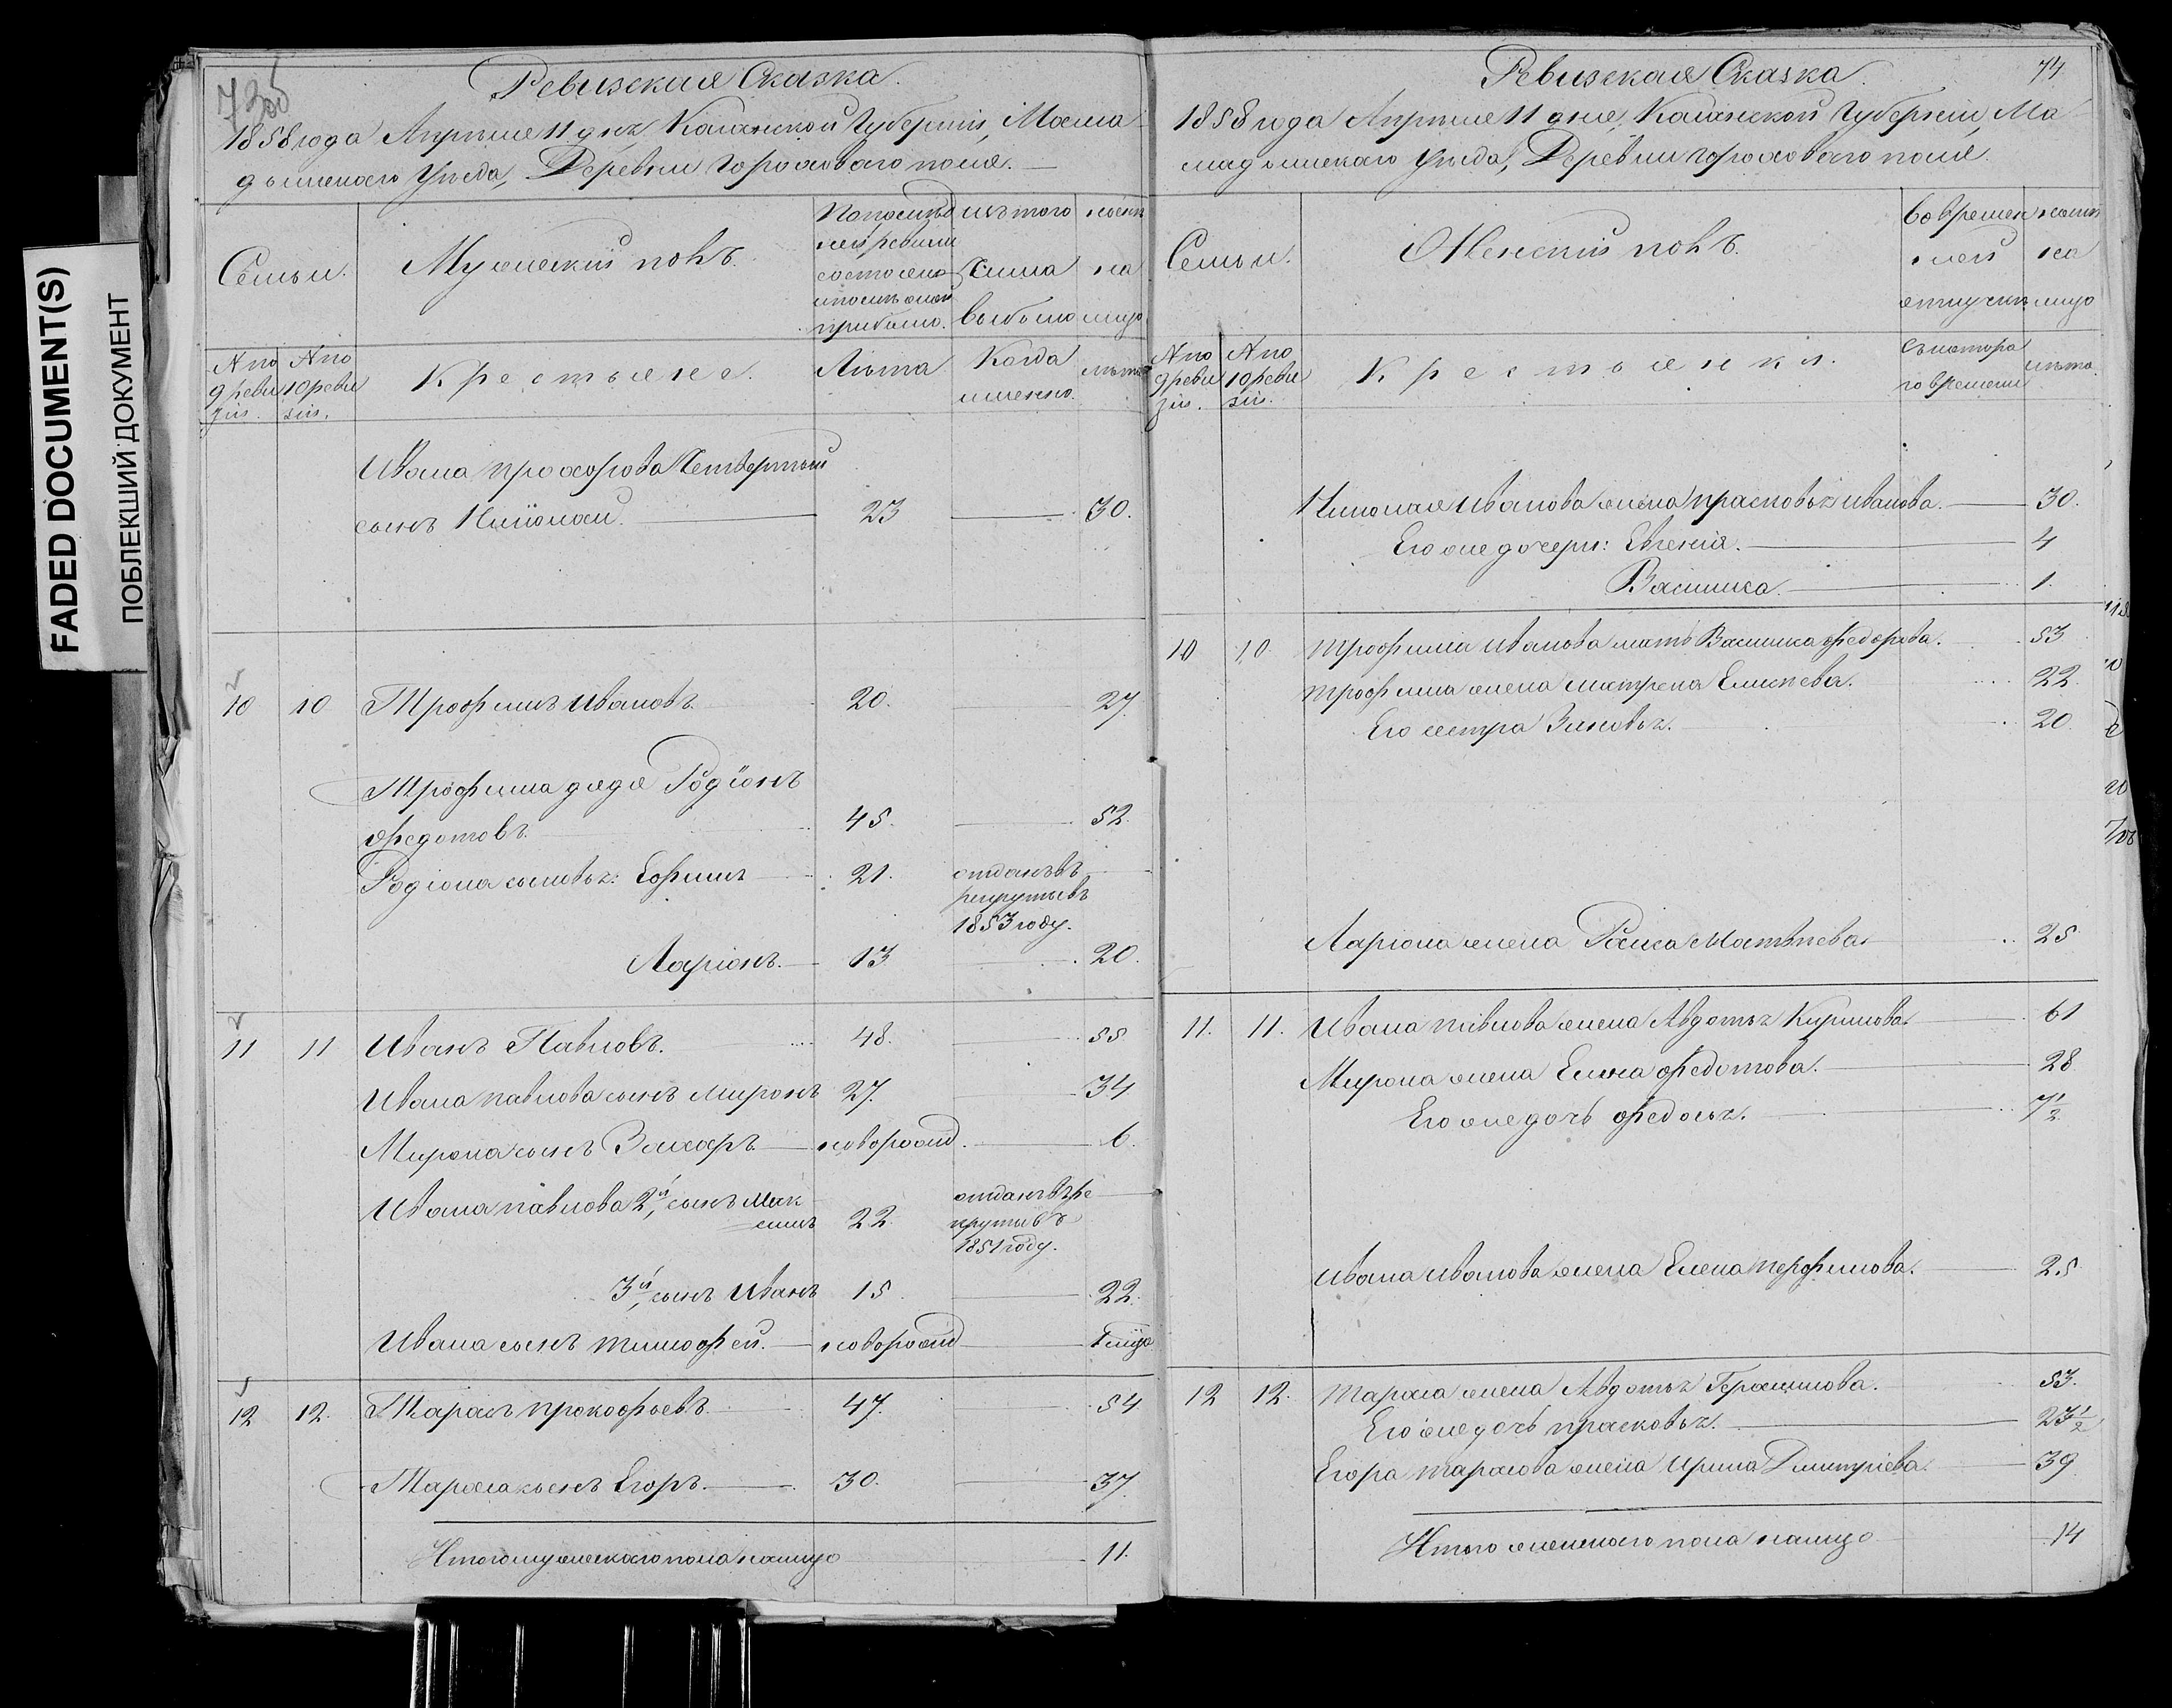 FADED DOCUMENT(S)
ПОБЛЕКШИЙ ДОКУМЕНТ
Ревизская Сказка.
1858 года Апреля 11 дня, Казанской Губернии, Мама-
дышскаго Уѣзда, Деревни Горохового поля.
Семьи.
Мужескій полъ.
По послѣд
ней ревизіи
состояло
и послѣ оной
прибыло.
изъ того
числа
выбыло
нынѣ
на
лицо
№ по
9 реви
зіи.
№ по
10 реви
зіи.
Крестьяне.
Лѣта
Когда
именно.
лѣта
Ивана Прохорова Четвертый
сынъ Николай. 23 30.
10 10 Трофимъ Ивановъ 20. 27.
Трофима дядя Родіонъ
Федотовъ. 45. 52.
Родіона сыновья: Ефимъ 21. отданъ въ
рекруты въ
1853 году.
Ларіонъ. 13 20.
11 11 Иванъ Павловъ. 48. 55
Ивана Павлова сынъ Миронъ 27. 34
Мирона сынъ Захаръ. новорожд. 6.
Ивана Павлова 2й, сынъ Мак
симъ 22. отданъ въ ре
круты въ
1851 году.
3й, сынъ Иванъ 15. 22.
Ивана сынъ Тимофей. новорожд
12 12. Тарасъ Прокофьевъ. 47. 54
Тараса сынъ Егоръ. 30. 37
Итого мужескаго пола налицо 11.
Ревизская Сказка. 74.
1858 года Апреля 11 дня, Казанской Губерніи, Ма
мадышскаго Уѣзда, Деревни Горохового поля.
Семьи.
Женскій полъ.
Во времен
ной
отлучкѣ
нынѣ
на
лицо
№ по
9 реви
зіи.
№ по
10 реви
зіи.
Крестьянки.
съ котора
го времени
лѣта.
Николая Иванова жена Прасковья Иванова. 30.
Его же дочери: Евгенія. 4
Василиса. 1.
10 10 Трофима Иванова мать Василиса Федорова. 53
Трофима жена Матрена Елисѣева. 22.
Его сестра Зиновья. 20
Ларіона жена Раиса Матвѣева. 25
11. 11. Ивана Павлова жена Авдотья Кирилова. 61
Мирона жена Елена Федотова. 28
Его же дочь Федосья. 7 1/2
Ивана Иванова жена Елена Перфилова. 25
12 12. Тараса жена Авдотья Герасимова. 53.
Его же дочь Прасковья. 23 1/2
Егора Тарасова жена Ирина Дмитріева. 39
Итого женскаго пола налицо 14